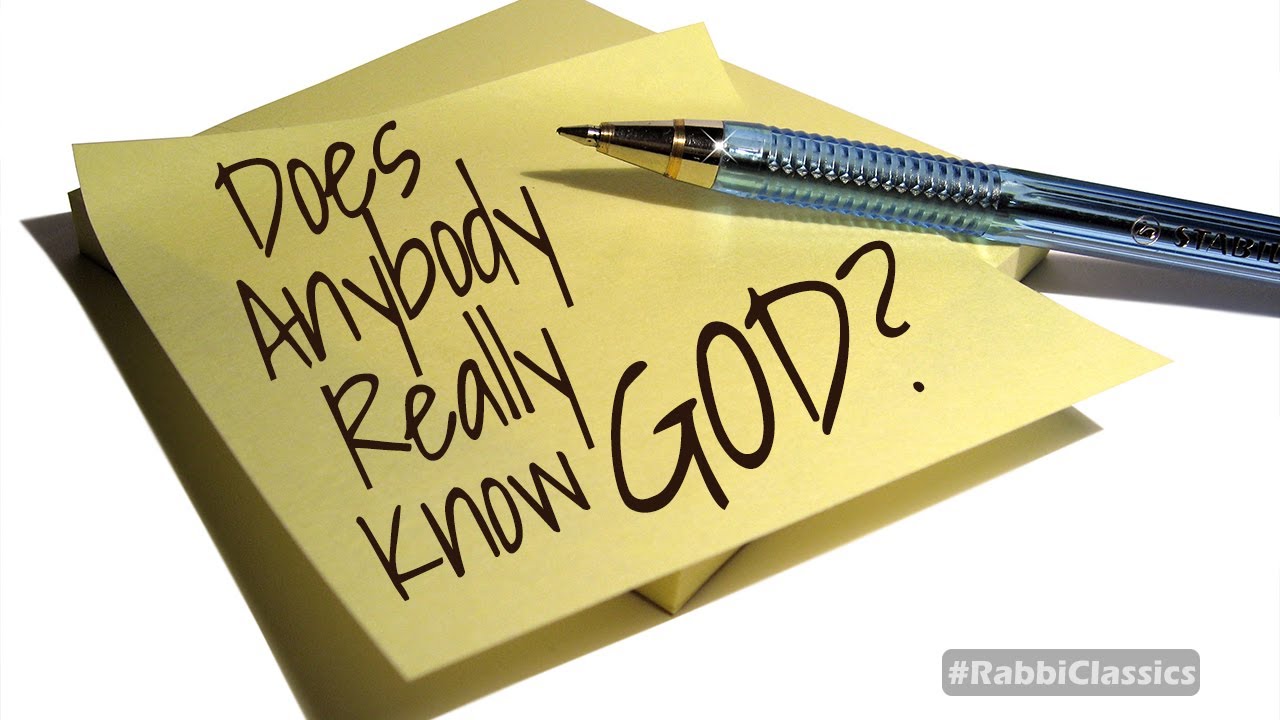 Does
Anybody
Really
Know GOD?
STABIL
#RabbiClassics